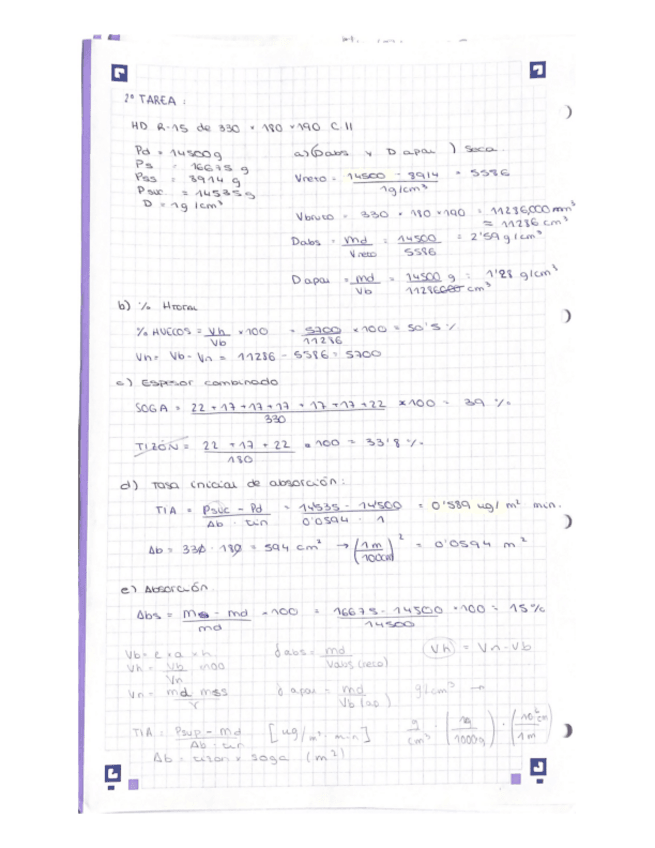 2ª TAREA :
HD R-15 de 330 × 180 × 190 C II
Pd = 14500 g
Ps = 16675 g
Pss = 8914 g
Psuc = 14535 g
D = 1g/cm³
a) Dabs y D apar ) Seca.
Vneto = 14500 - 8914 / 1g/cm³ = 5586
Vbruto = 330 × 180 × 190 = 11286,000 mm³
= 11286 cm³
Dabs = md / Vneto = 14500 / 5586 = 2'59 g/cm³
D apar = md / Vb = 14500 g / 11286000 cm³ = 1'28 g/cm³
b) % Htotal
% HUECOS = Vh / Vb × 100 = 5700 / 11286 × 100 = 50'5 %
Vh = Vb - Vn = 11286 - 5586 = 5700
c) Espesor combinado
SOGA = 22 + 17 + 17 + 17 + 17 + 17 + 22 / 330 × 100 = 39 %
TIZÓN = 22 + 17 + 22 / 180 × 100 = 33'8 %
d) Tasa inicial de absorción :
TIA = Psuc - Pd / Ab · tin = 14535 - 14500 / 0'0594 · 1 = 0'589 ug/ m² min.
Ab = 330 · 180 = 594 cm² → (1m / 100cm)² = 0'0594 m²
e) Absorción.
Abs = ms - md / md · 100 = 16675 - 14500 / 14500 · 100 = 15 %
Vb = l × a × h.
Vh = Vb / Vn · 100
Vn = md mss / γ
d abs = md / Vabs (neto)
d apar = md / Vb (ap)
Vh = Vn - Vb
g/cm³ →
TIA = Psup - md / Ab · tin [ug/m² · min]
g / cm³ · (1g / 1000g) · (10⁶ cm / 1m)
Ab = tizon × soga (m²)